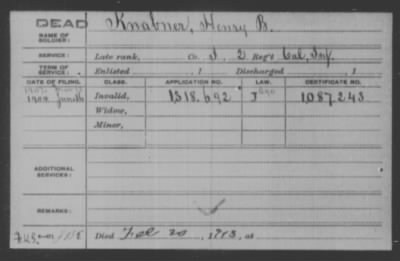 DEAD
NAME OF SOLDIER: Knabner, Henry B.
SERVICE: Late rank, Co. I, 2 Reg't Cal. Inf.
TERM OF SERVICE: Enlisted 1 Discharged 1
DATE OF FILING. CLASS. APPLICATION NO. LAW. CERTIFICATE NO.
1904 June Invalid, 1318.692 J 1087.243
Widow,
Minor,
ADDITIONAL SERVICES:
REMARKS:
Died Feb 20, 1913, at